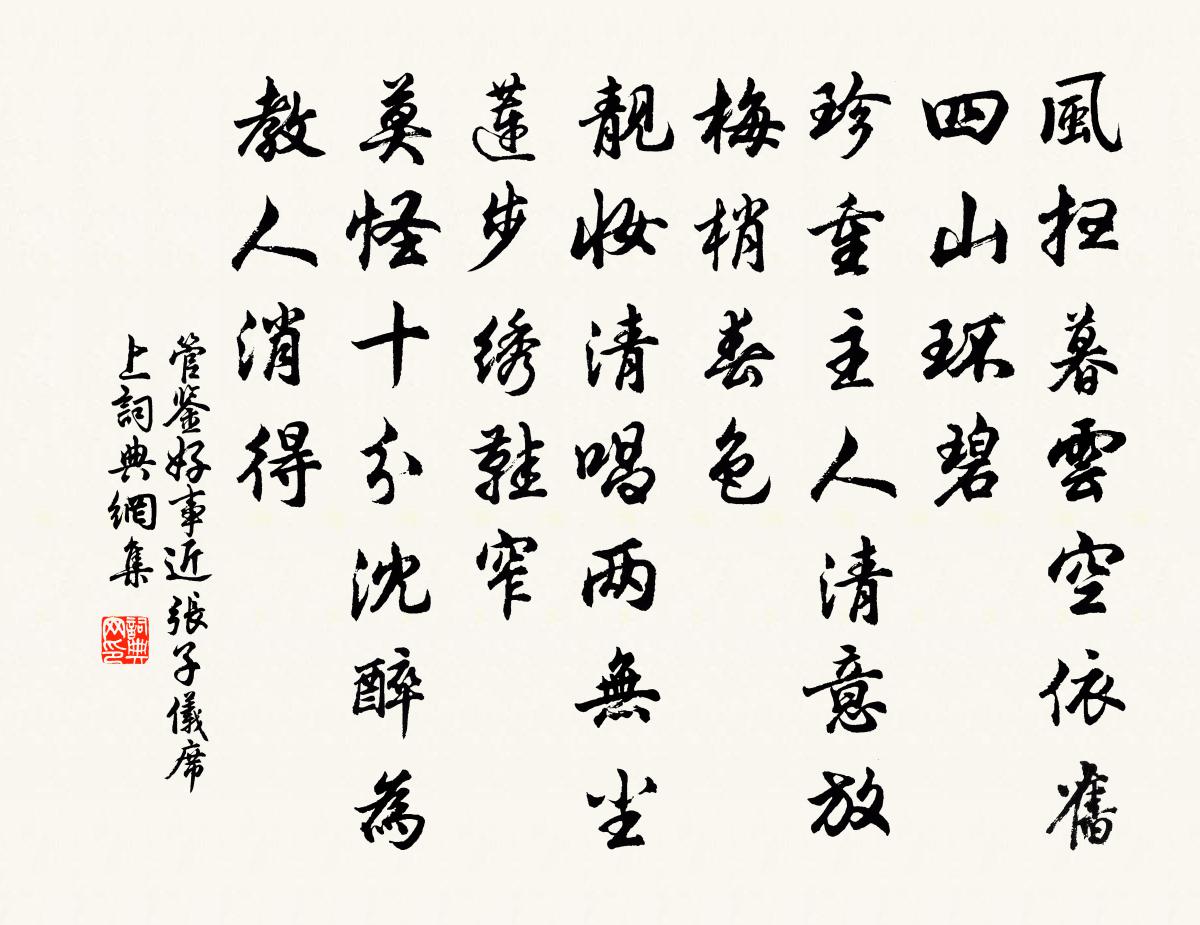 風扫暮雲空依舊
四山环碧
珍重主人清意放
梅梢春色
靚妝清唱两無尘
蓮步綉鞋窄
莫怪十分沈醉為
教人消得
管鉴好事近 張子儀席
上詞典網集
詞典网印